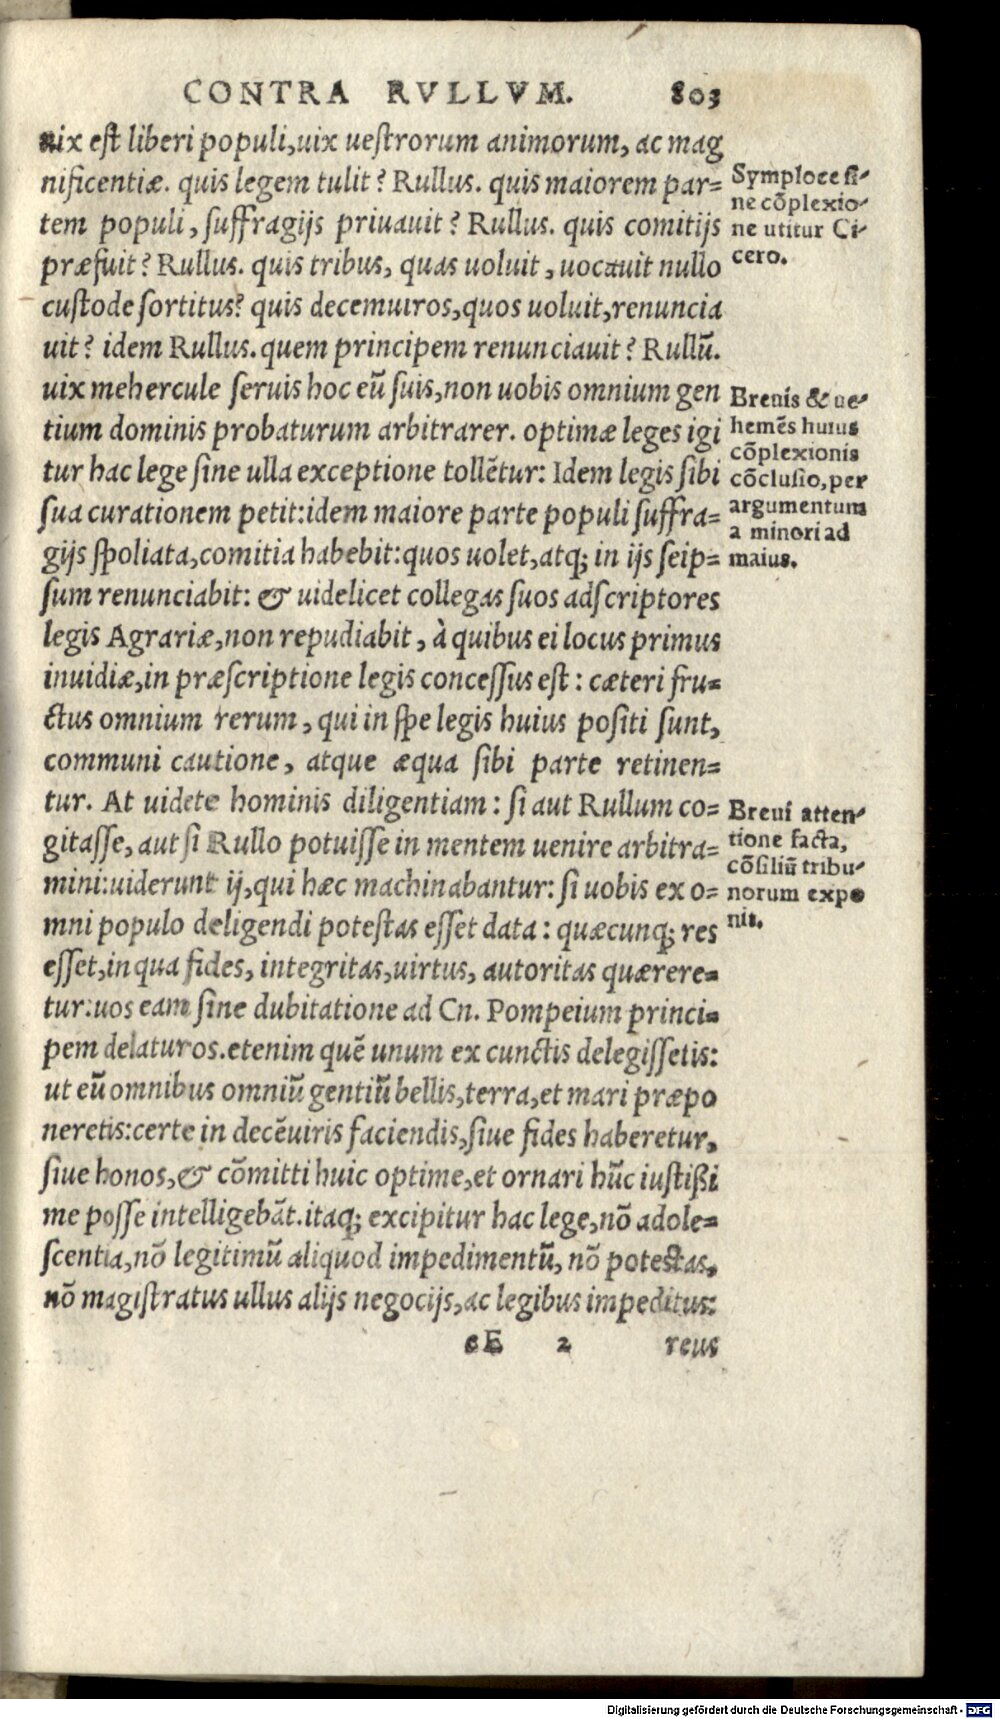 CONTRA RVLLVM. 803
uix est liberi populi,uix uestrorum animorum, ac mag
nificentiæ. quis legem tulit? Rullus. quis maiorem par=
tem populi, suffragijs priuauit? Rullus. quis comitijs
præfuit? Rullus. quis tribus, quas uoluit, uocauit nullo
custode sortitus? quis decemuiros,quos uoluit,renuncia
uit? idem Rullus. quem principem renunciauit? Rullū.
uix mehercule seruis hoc eū suis,non uobis omnium gen
tium dominis probaturum arbitrarer. optimæ leges igi
tur hac lege sine ulla exceptione tollētur: Idem legis sibi
sua curationem petit:idem maiore parte populi suffra=
gijs spoliata,comitia habebit:quos uolet,atq; in ijs seip=
sum renunciabit: & uidelicet collegas suos adscriptores
legis Agrariæ,non repudiabit, à quibus ei locus primus
inuidiæ,in præscriptione legis concessus est: cæteri fru=
ctus omnium rerum, qui in spe legis huius positi sunt,
communi cautione, atque æqua sibi parte retinen=
tur. At uidete hominis diligentiam: si aut Rullum co=
gitasse, aut si Rullo potuisse in mentem uenire arbitra=
mini:uiderunt ij,qui hæc machinabantur: si uobis ex o=
mni populo deligendi potestas esset data: quæcunq; res
esset,in qua fides, integritas,uirtus, autoritas quærere=
tur:uos eam sine dubitatione ad Cn. Pompeium princi=
pem delaturos.etenim quē unum ex cunctis delegissetis:
ut eū omnibus omniū gentiū bellis,terra,et mari præpo
neretis:certe in decēuiris faciendis,siue fides haberetur,
siue honos,& cōmitti huic optime,et ornari hūc iustißi
me posse intelligebāt.itaq; excipitur hac lege,nō adole=
scentia,nō legitimū aliquod impedimentū, nō potestas,
nō magistratus ullus alijs negocijs,ac legibus impeditus:
eE 2 reus
Symploce si-
ne cōplexio-
ne utitur Ci-
cero.
Breuis & ue-
hemēs huius
cōplexionis
cōclusio,per
argumentum
a minori ad
maius.
Breui atten-
tione facta,
cōsiliū tribu-
norum expo
nit.
Digitalisierung gefördert durch die Deutsche Forschungsgemeinschaft - DFG